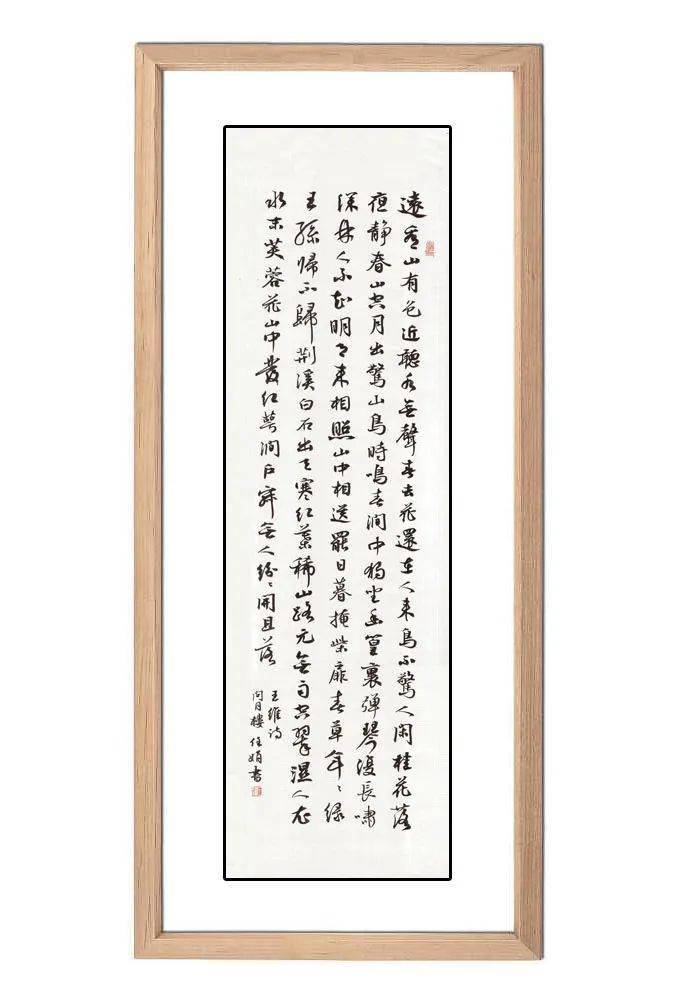 遠看山有色近聽水無聲春去花還在人來鳥不驚人閑桂花落
夜静春山空月出驚山鳥時鳴春澗中獨坐幽篁裏彈琴復長嘯
深林人不知明月來相照山中相送罷日暮掩柴扉春草年〻綠
王孫歸不歸荆溪白石出天寒紅葉稀山路元無雨空翠濕人衣
木末芙蓉花山中發紅萼澗户寂無人紛〻開且落
王維詩
問月樓任娟書